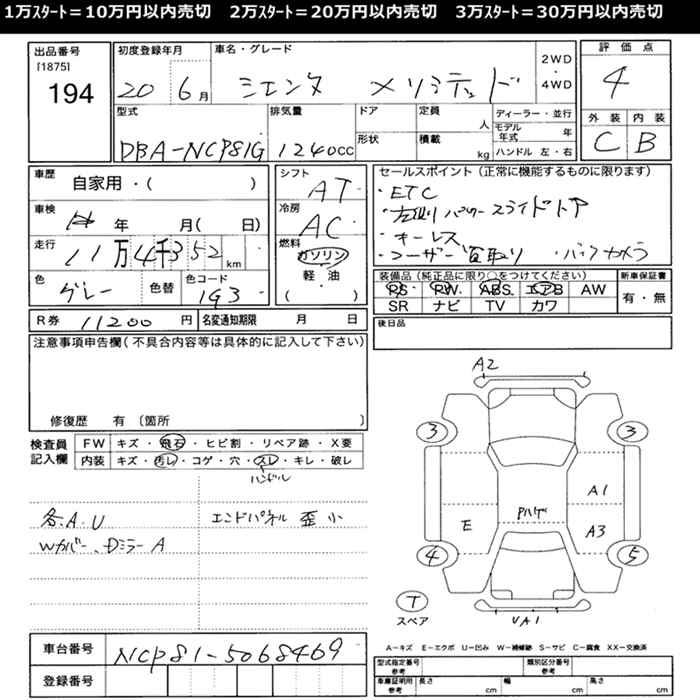 1万ｽﾀｰﾄ＝10万円以内売切　2万ｽﾀｰﾄ＝20万円以内売切　3万ｽﾀｰﾄ＝30万円以内売切
出品番号
[1875]
194
初度登録年月
20 6月
車名・グレード
シエンタ
2WD
・
4WD
評価点
4
外装 内装
C B
型式
DBA-NCP81G
排気量
1240cc
ドア
形状
定員
人
積載
kg
ディーラー・並行
モデル年式 年
ハンドル 左・右
車歴
自家用・( )
車検
年 月( 日)
走行
11万4千352km
色
グレー
色替
色コード
1G3
シフト
AT
冷房
AC
燃料
ガソリン
軽・油
( )
セールスポイント（正常に機能するものに限ります）
・ETC
・左側パワースライドドア
・キーレス
・ユーザー買取り ・バックカメラ
装備品（純正品に限り○をつけてください）
PS PW ABS エアB AW
SR ナビ TV カワ
新車保証書
有・無
R券 11200 円
名変通知期限 月 日
後日品
注意事項申告欄（不具合内容等は具体的に記入して下さい）
修復歴 有〔箇所
検査員
記入欄
FW キズ・飛石・ヒビ割・リペア跡・X要
内装 キズ・汚レ・コゲ・穴・スレ・キレ・破レ
ハンドル
各A.U
Wカバー、Dミラー A
エンドパネル 歪 小
A2
3 3
A1
E
Pハゲ
A3
4 5
T
スペア
UA1
A－キズ E－エクボ U－凹み W－補修跡 S－サビ C－腐食 XX－交換済
車台番号
NCP81-5068469
登録番号
型式指定番号
参考
類別区分番号
参考
車庫証明用
参考
長さ cm 幅 cm 高さ cm